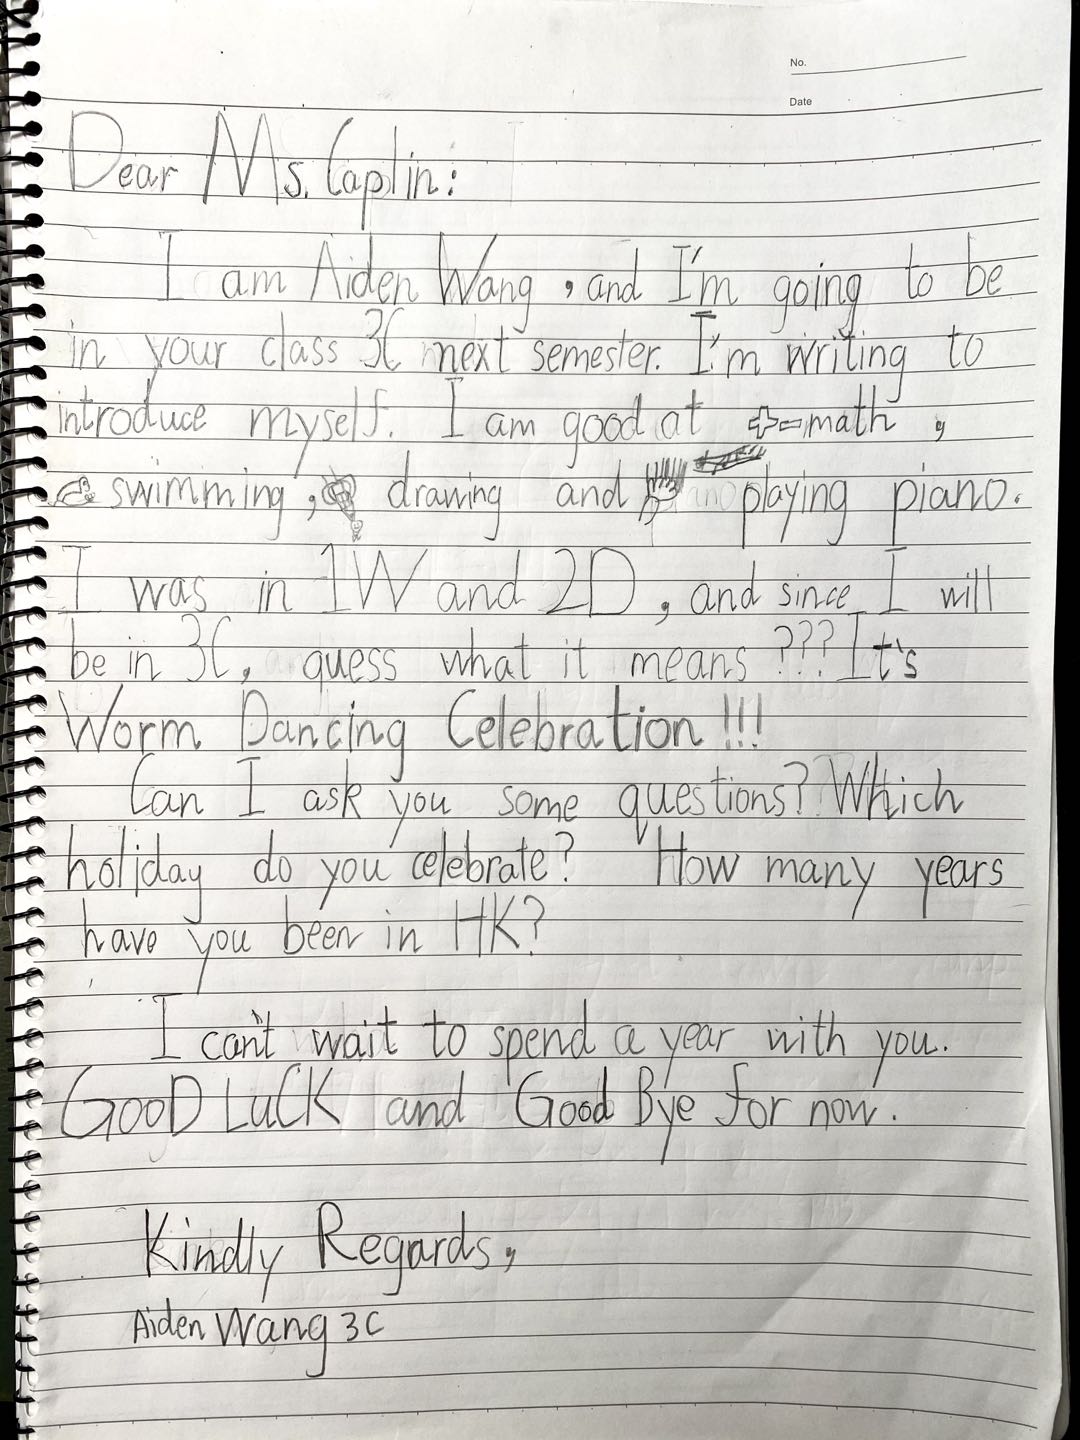 No.
Date
Dear Ms. Caplin:
I am Aiden Wang, and I'm going to be
in your class 3C next semester. I'm writing to
introduce myself. I am good at +-math,
swimming, drawing and playing piano.
I was in 1W and 2D, and since I will
be in 3C, guess what it means??? It's
Worm Dancing Celebration!!!
Can I ask you some questions? Which
holiday do you celebrate? How many years
have you been in HK?
I can't wait to spend a year with you.
GooD LuCK and Good Bye for now.
Kindly Regards,
Aiden Wang 3C